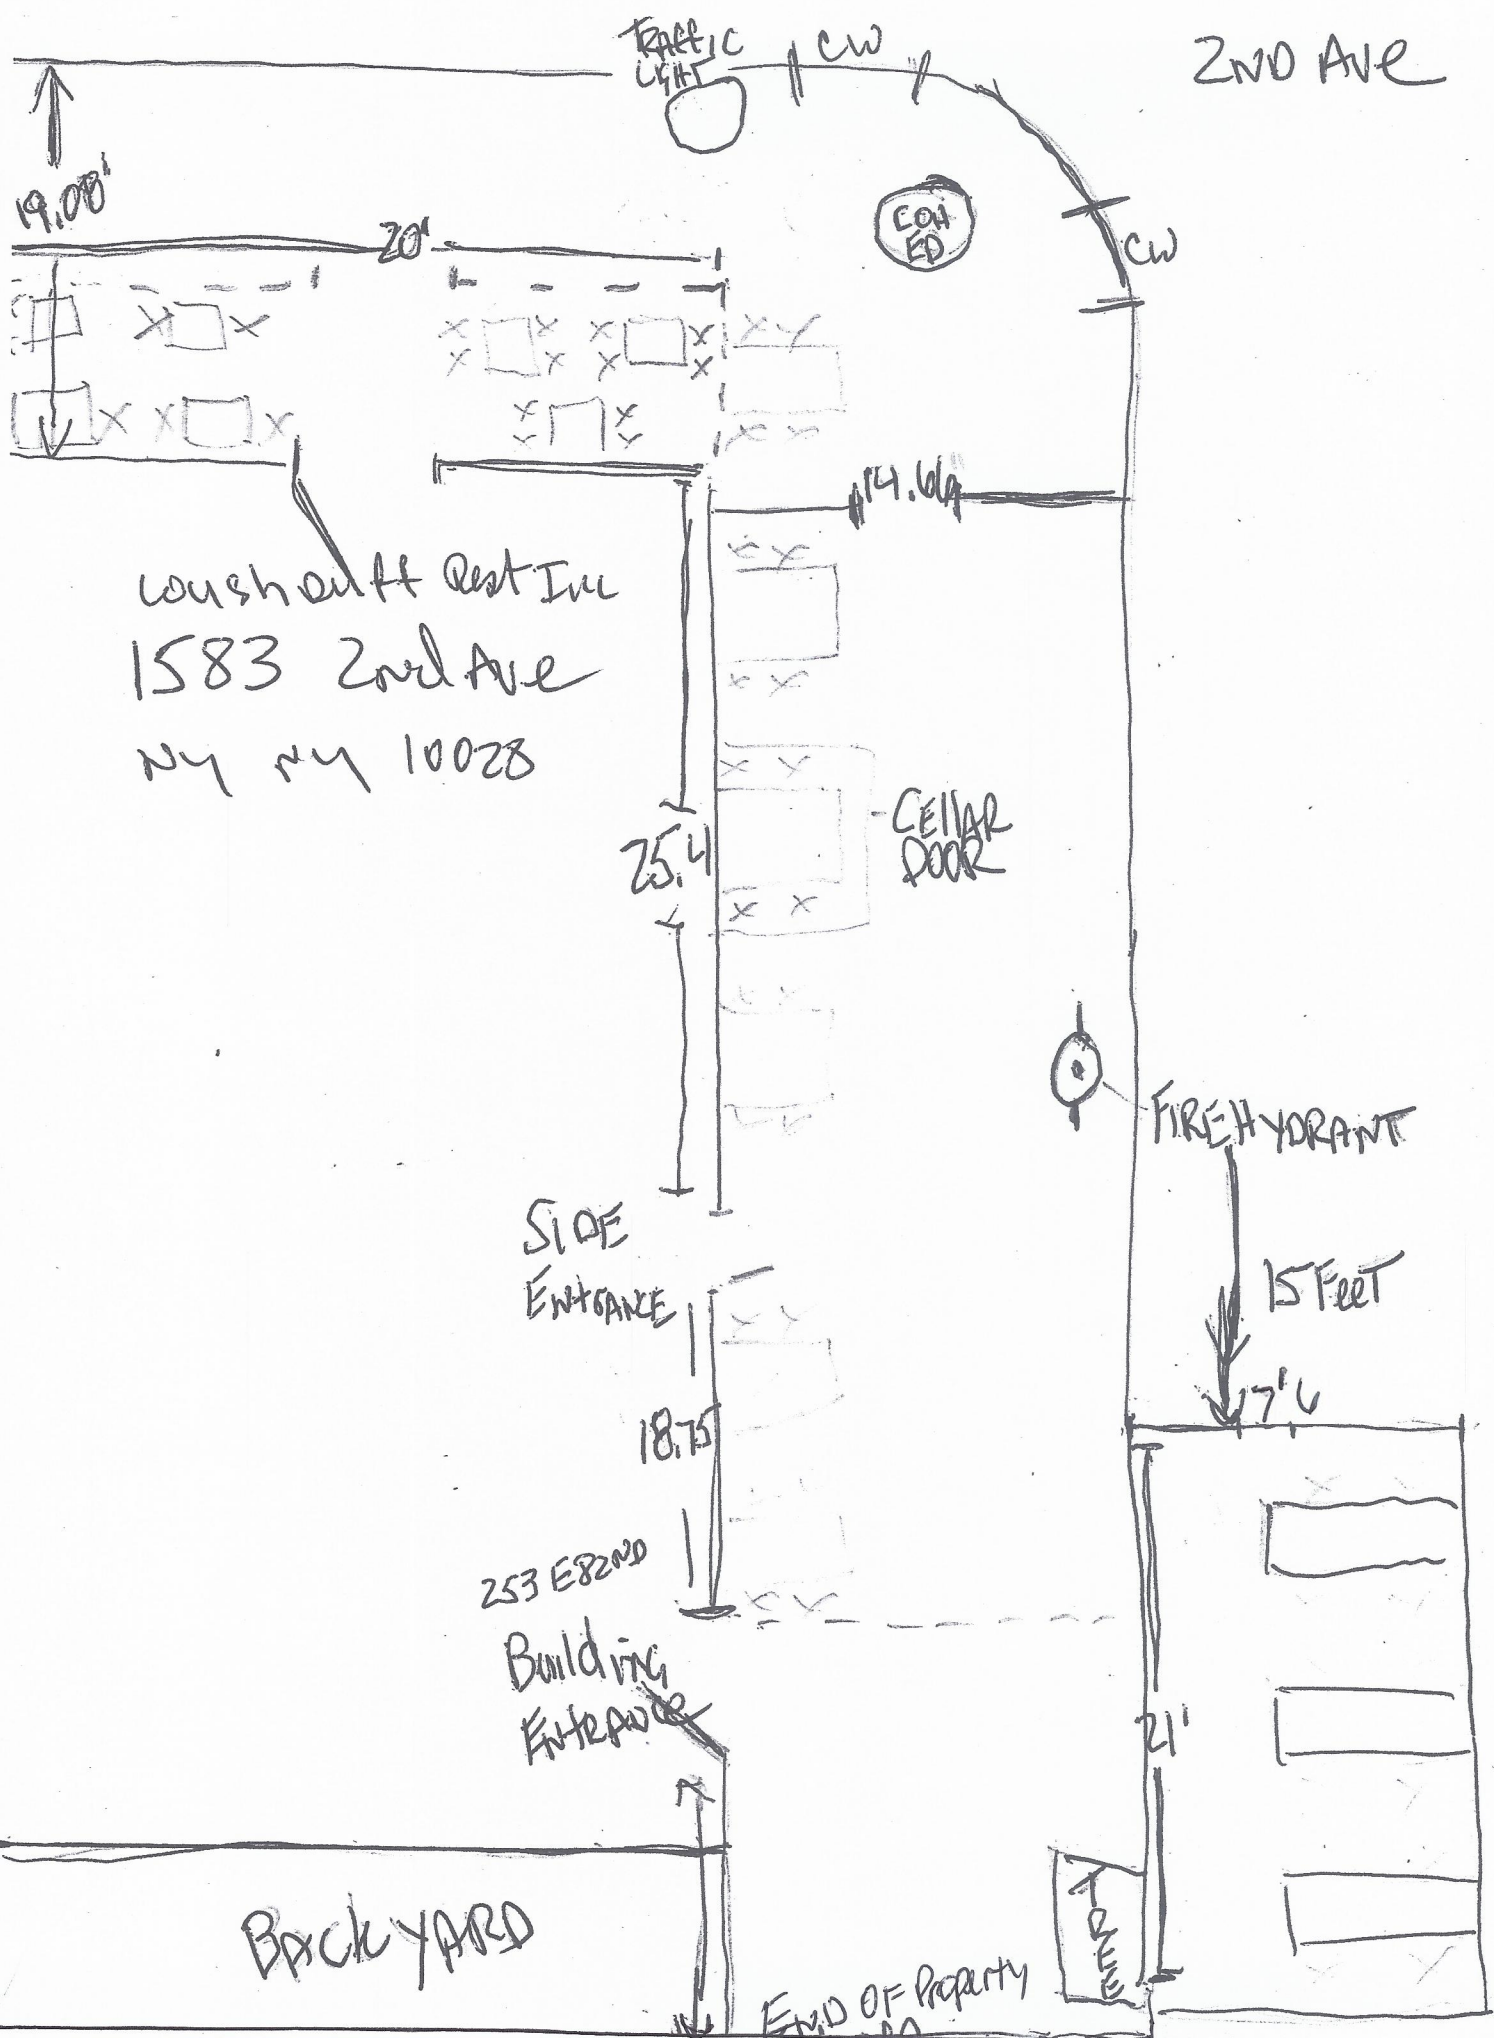 TRAFFIC
LIGHT
CW
2ND AVE
19.08'
20'
CON
ED
CW
14.66
Rest Inc
1583 2nd Ave
NY NY 10028
CELLAR
DOOR
25.4
FIRE HYDRANT
SIDE
ENTRANCE
15 FEET
7'6
18.75
253 E82ND
Building
ENTRANCE
21'
TREE
BACKYARD
END OF Property